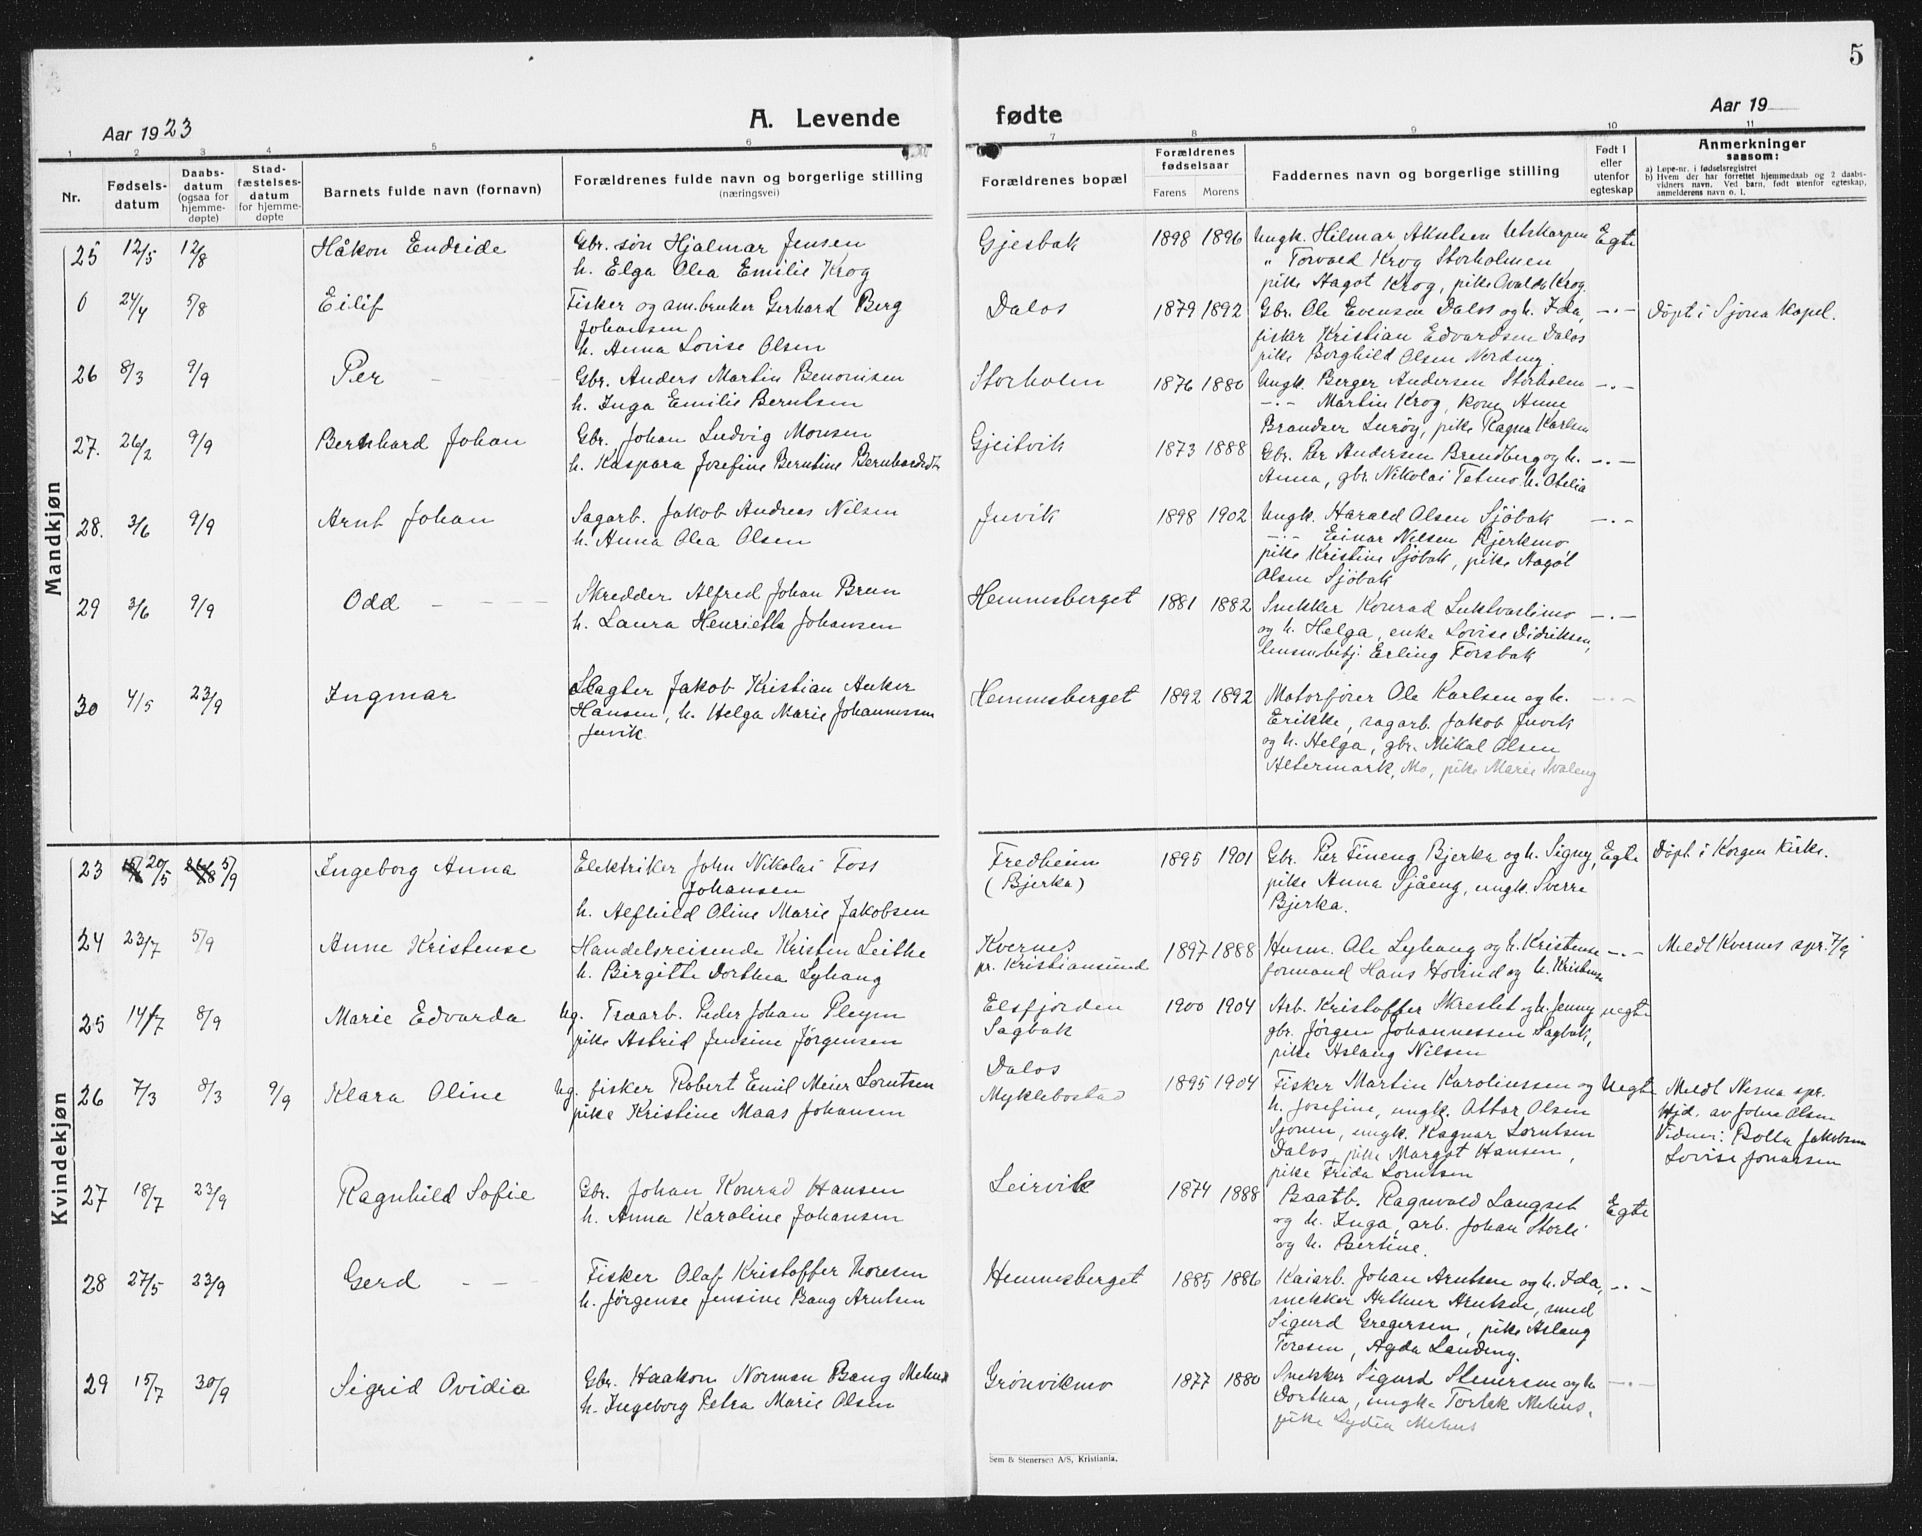 5
Aar 1923
A. Levende
fødte
Aar 19
1 2 3 4 5 6
7 8 9 10 11
Nr.
Fødsels-
datum
Daabs-
datum
(ogsaa for
hjemme-
døpte)
Stad-
fæstelses-
datum
for hjemme-
døpte
Barnets fulde navn (fornavn)
Forældrenes fulde navn og borgerlige stilling
(næringsvei)
Forældrenes bopæl
Forældrenes
fødselsaar
Farens Morens
Faddernes navn og borgerlige stilling
Født i
eller
utenfor
egteskap
Anmerkninger
saasom:
a) Løpe-nr. i fødselsregistret
b) Hvem der har forrettet hjemmedaab og 2 daabs-
vidners navn. Ved barn, født utenfor egteskap,
anmelderens navn o. l.
Mandkjøn
25 12/5 12/8 Håkon Endride
Gbr. søn Hjalmar Jensen
h. Elga Olea Emilie Krog
Gjesbak 1898 1896
Ungk. Hilmar Akselsen Utskarpen
" Torvald Krog Storholmen
pike Aagot Krog, pike Ovalda Krog
Egte
0 24/4 5/8 Eilif
Fisker og am.bruker Gerhard Berg
Johansen
h. Anna Lovise Olsen
Dalos 1879 1892
Gbr. Ole Evensen Dalos og h. Ida,
fisker Kristian Edvardsen Dalos
pike Borghild Olsen Nordeng
-"-
Døpt i Sjona Kapel.
26 8/3 9/9 Per - - -
Gbr. Anders Martin Benonisen
h. Inga Emilie Berntsen
Storholm 1876 1880
Ungk. Berger Andersen Storholm
-"- Martin Krog, kone Anne
Brandser Lurøy, pike Ragna Karlsen
-"-
27. 26/2 9/9 Bernhard Johan
Gbr. Johan Ludvig Monsen
h. Kaspara Josefine Berntine Bernhardsdt.
Gjeitvik 1873 1888
Gbr. Per Andersen Brendberg og h.
Anna, gbr. Nikolai Tetmo h. Otelia
-"-
28. 3/6 9/9 Arnt Johan
Sagarb. Jakob Andreas Nilsen
h. Anna Olea Olsen
Juvik 1898 1902
Ungk. Harald Olsen Sjøbak
-"- Einar Nilsen Bjerkmo
pike Kristine Sjøbak, pike Aagot
Olsen Sjøbak
-"-
29 3/6 9/9 Odd - - - -
Skredder Alfred Johan Brun
h. Laura Henriette Johansen
Hemnesberget 1881 1882
Snekker Konrad Luktvaslimo
og h. Helga, enke Lovise Didriksen,
lensm.betj. Erling Forsbak
-"-
30 4/5 23/9 Ingmar
Slagter Jakob Kristian Anker
Hansen, h. Helga Marie Johannessen
Juvik
Hemnesberget 1892 1892
Motorfører Ole Karlsen og h.
Erikke, sagarb. Jakob Juvik
og h. Helga, gbr. Mikal Olsen
Altermark, Mo, pike Marie Svaleng
-"-
Kvindekjøn
23 20/5 26/8 5/9 Ingeborg Anna
Elektriker John Nikolai Foss
Johansen
h. Alfhild Oline Marie Jakobsen
Fredheim
(Bjerka)
1895 1901
Gbr. Per Fineng Bjerka og h. Signy,
pike Anna Sjåeng, ungk. Sverre
Bjerka.
Egte
Døpt i Korgen Kirke.
24 23/7 5/9 Anne Kristense
Handelsreisende Kristen Leithe
h. Birgitte Dorthea Lyhaug
Kvernes
pr. Kristiansund
1897 1888
Husm. Ole Lyhaug og h. Kristense
formand Hans Hovind og h. Kristense
-"-
Meldt Kvernes spr. 7/9
25 14/7 8/9 Marie Edvarda
Ug. Træarb. Peder Johan Pleym
pike Astrid Jensine Jørgensen
Elsfjorden
Sagbak
1900 1904
Arb. Kristoffer Skreslet og h. Jenny
gbr. Jørgen Johannessen Sagbak,
pike Aslaug Nilsen
uegte
26 7/3 8/3 9/9 Klara Oline
Ug. fisker Robert Emil Meier Lorntsen
pike Kristine Maas Johansen
Dalos
Myklebostad
1895 1904
Fisker Martin Karolinssen og
h. Josefine, ungk. Ottar Olsen
Sjonen, ungk. Ragnar Lorntsen
Dalos, pike Margot Hansen,
pike Frida Lorntsen
Uegte
Meldt Nesna spr.
Hjd. av Johna Olsen
Vidner: Bolla Jakobsen
Lovise Jonassen
27 18/7 23/9 Ragnhild Sofie
Gbr. Johan Konrad Hansen
h. Anna Karoline Johansen
Leirvik 1874 1888
Baatb. Ragnvald Langset
og h. Inga, arb. Johan Storli
og h. Bertine.
Egte
28 27/5 23/9 Gerd - - -
Fisker Olaf Kristoffer Thoresen
h. Jørgense Jensine Bang Arntsen
Hemnesberget 1885 1886
Kaiarb. Johan Arntsen og h. Ida,
snekker Arthur Arntsen, smed
Sigurd Gregersen, pike Aslaug
Toresen, Agda Landeng.
-"-
29 15/7 30/9 Sigrid Ovidia
Gbr. Haakon Norman Bang Mehus
h. Ingeborg Petra Marie Olsen
Grønvikmo 1877 1880
Snekker Sigurd Stenersen og h.
Dorthea, ungk. Torleik Mehus,
pike Lydia Mehus
-"-
Sem & Stenersen A/S, Kristiania.